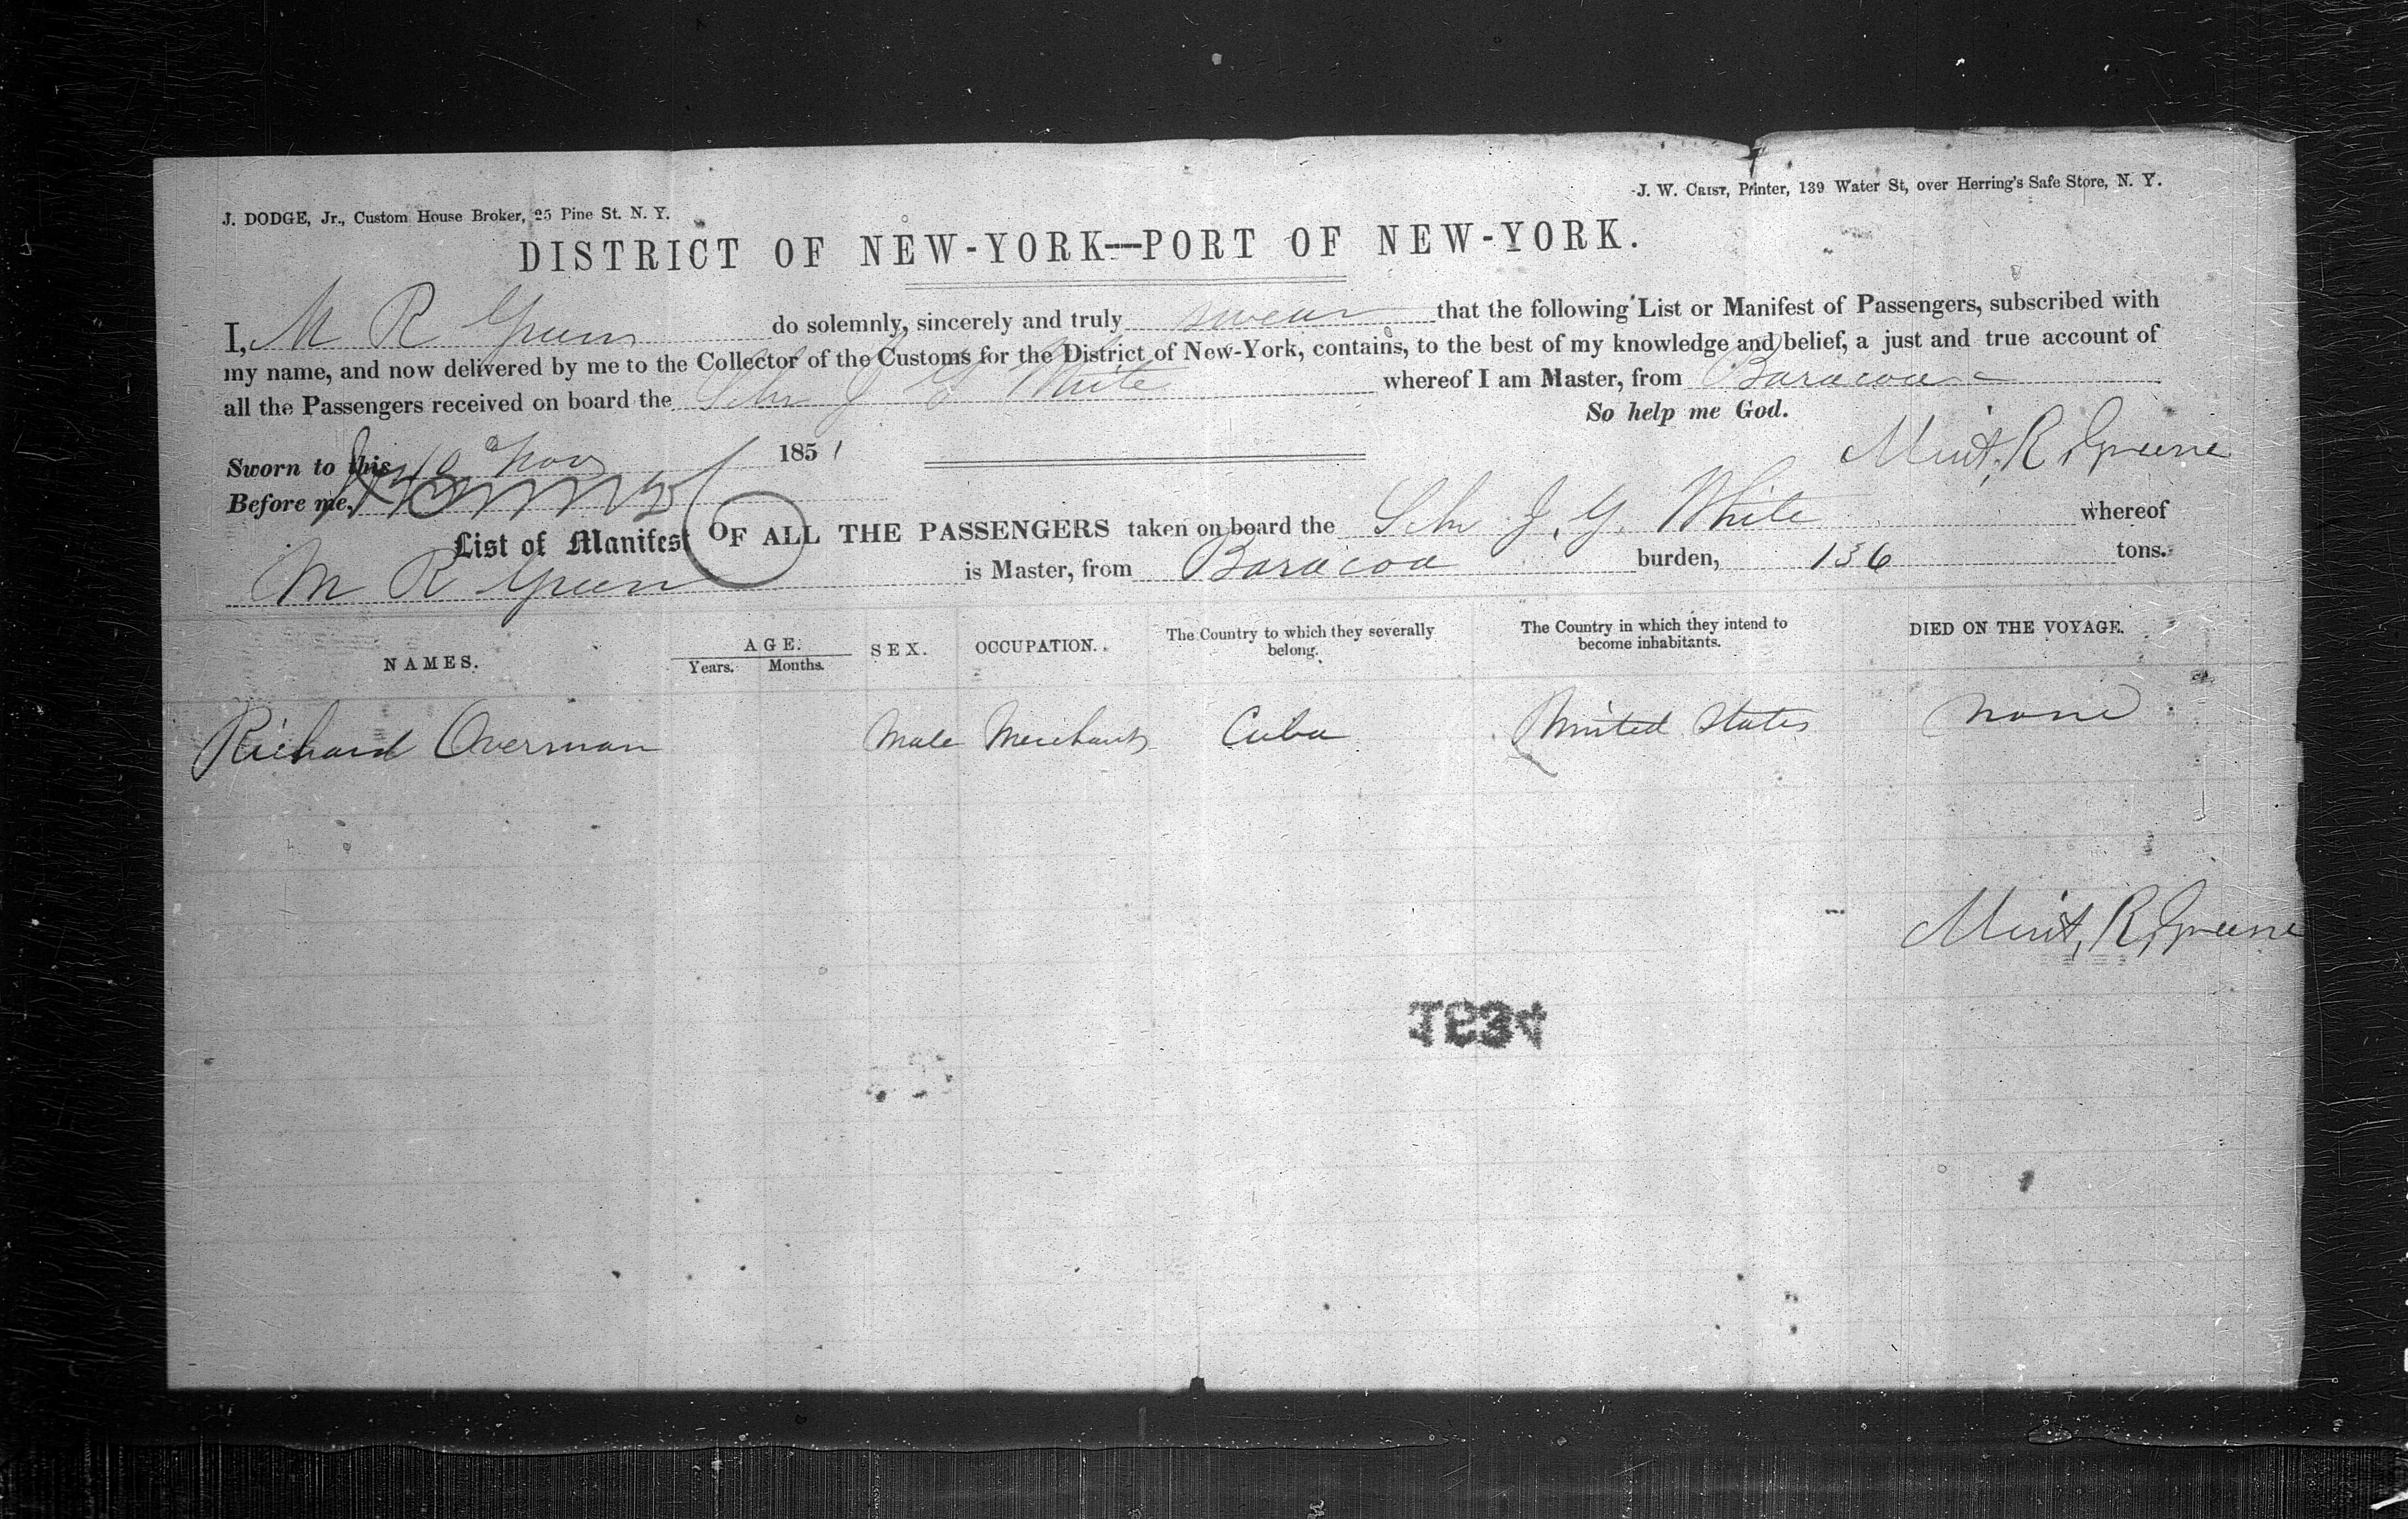 J. DODGE, Jr., Custom House Broker, 25 Pine St. N. Y.
J. W. CRIST, Printer, 139 Water St, over Herring's Safe Store, N. Y.
DISTRICT OF NEW-YORK—PORT OF NEW-YORK.
I, M R Green do solemnly, sincerely and truly swear that the following List or Manifest of Passengers, subscribed with
my name, and now delivered by me to the Collector of the Customs for the District of New-York, contains, to the best of my knowledge and belief, a just and true account of
all the Passengers received on board the Schr J G White whereof I am Master, from Baracoa
So help me God.
Sworn to this 10 Nov 1851
R. Greene
Before me,
List of Manifest OF ALL THE PASSENGERS taken on board the Schr J. G. White whereof
M R Green is Master, from Baracoa burden, 136 tons.
NAMES. AGE. SEX. OCCUPATION. The Country to which they severally belong. The Country in which they intend to become inhabitants. DIED ON THE VOYAGE.
Years. Months.
Richard Overman Male Merchant Cuba United States none
R. Greene